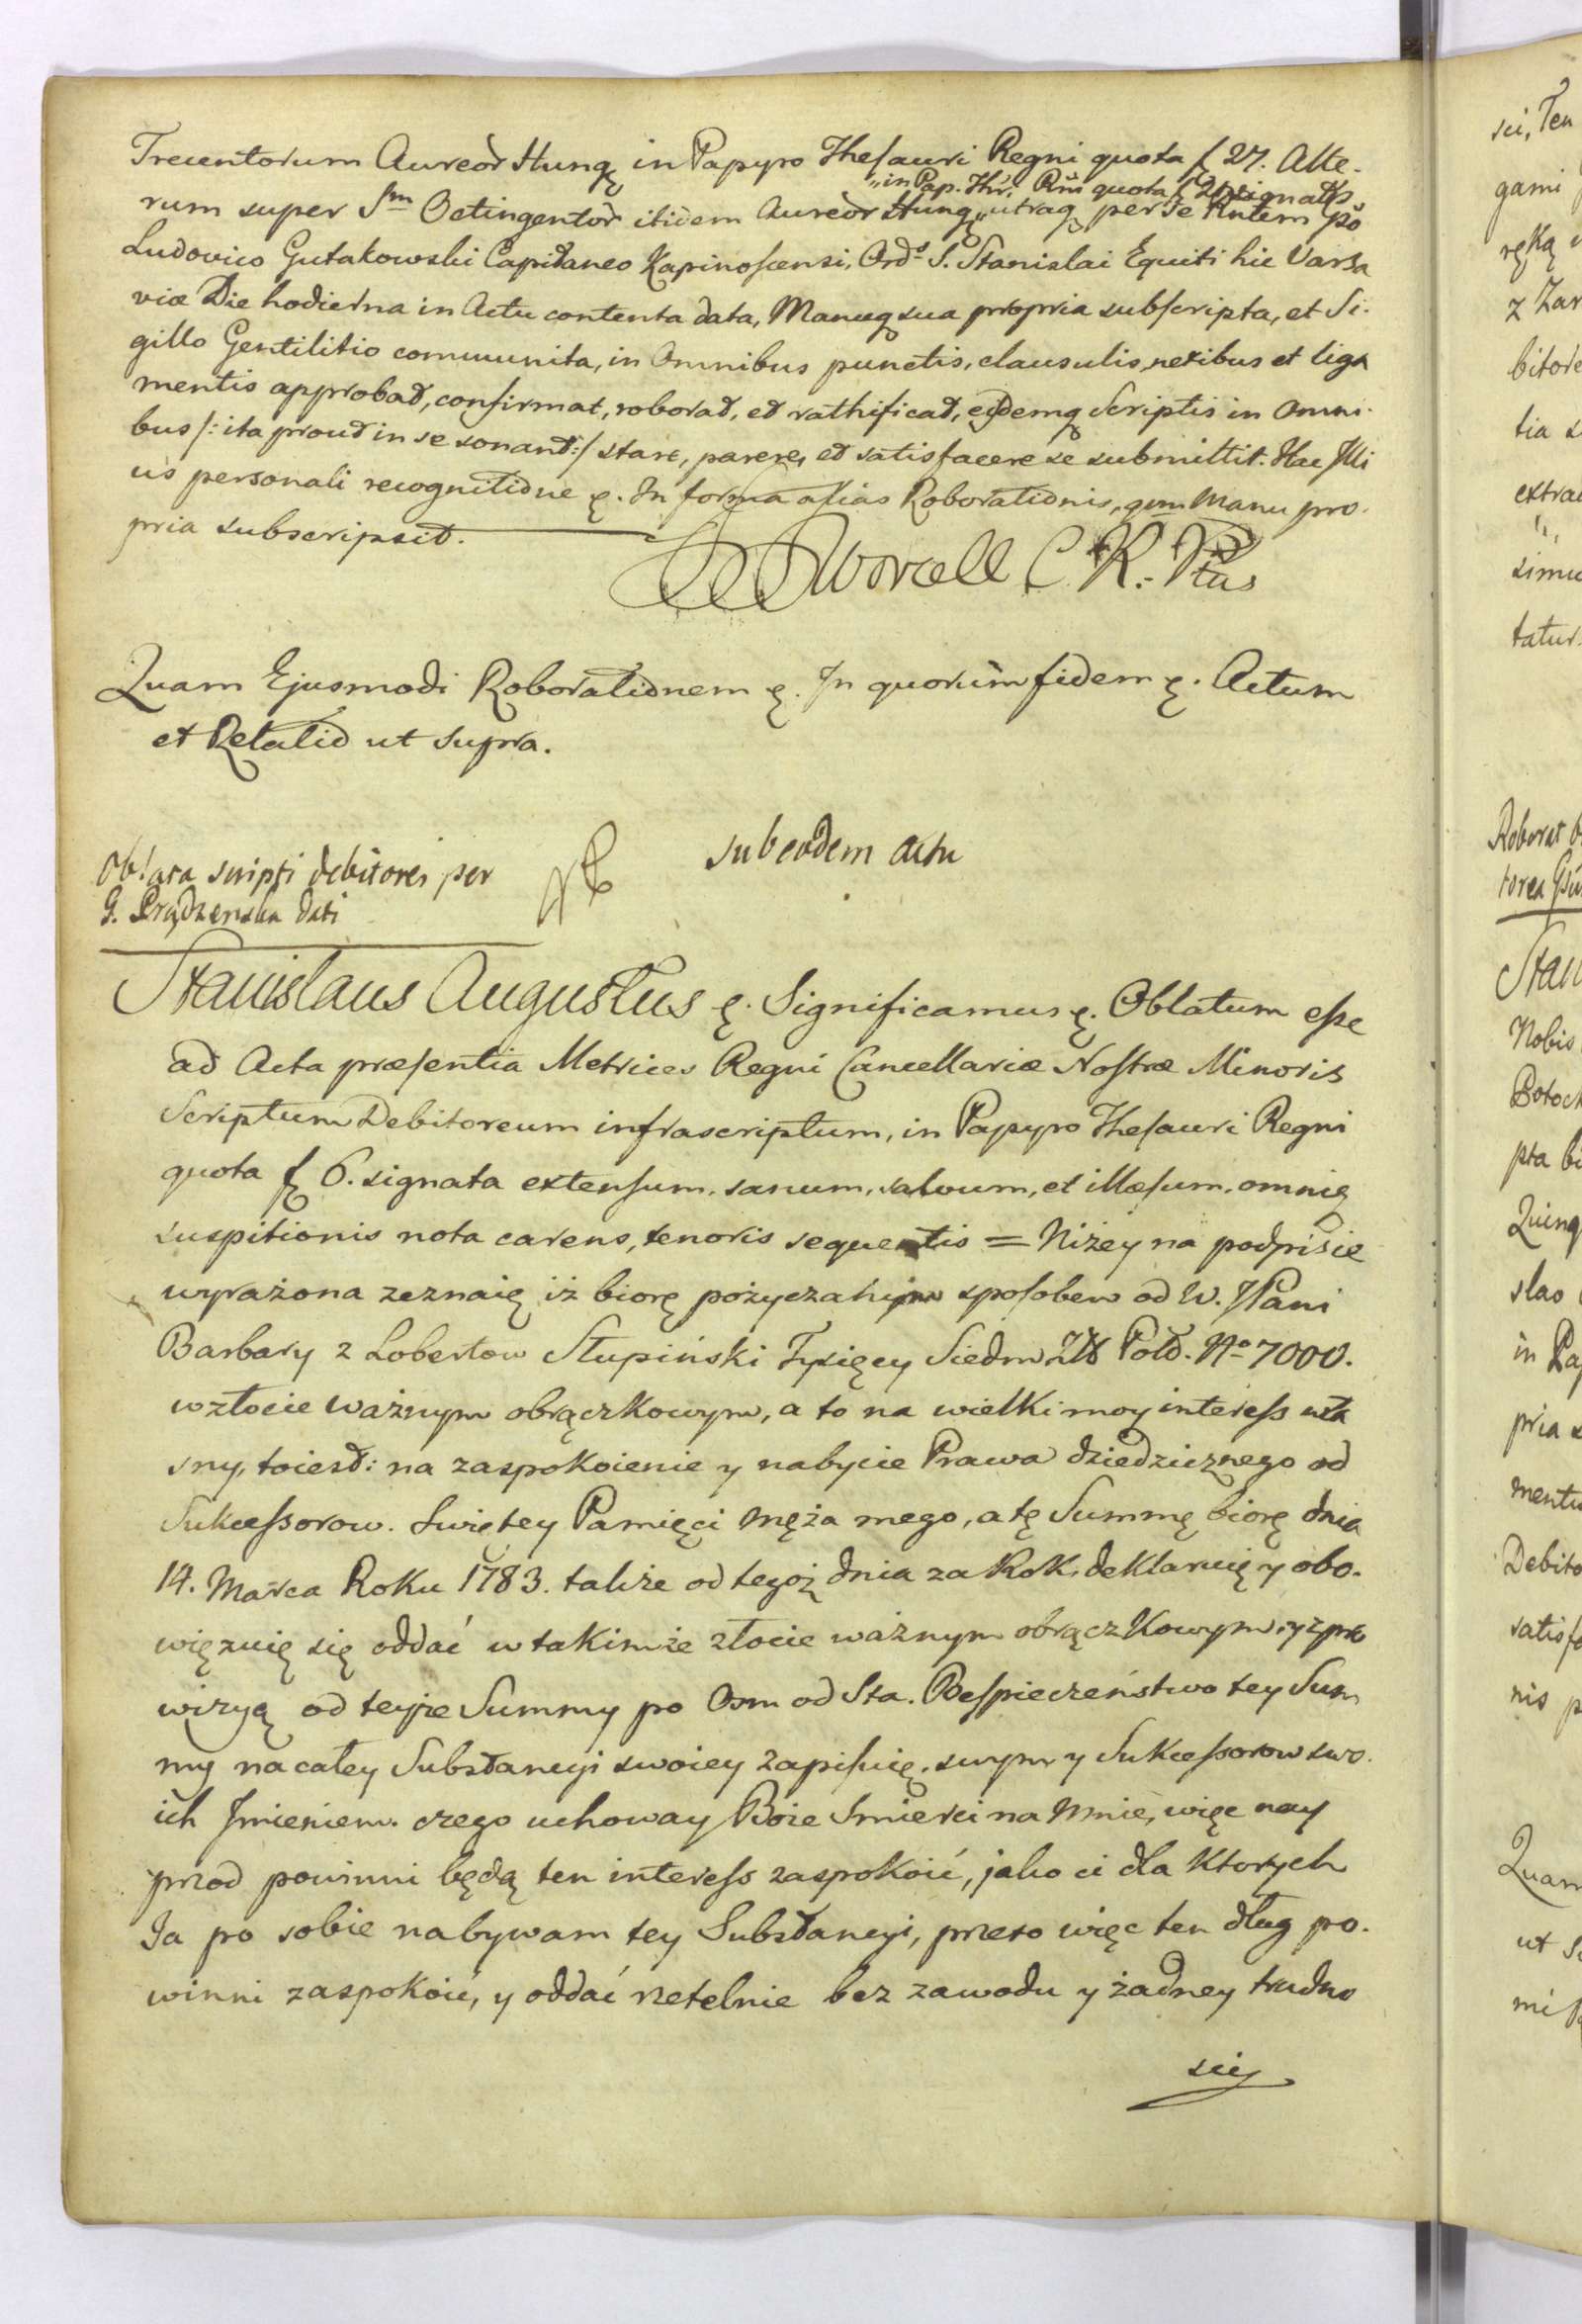 Trecentorum Aureor Hung. in Papyro Thesauri Regni quota f 27. Alte-
„in Pap. Thr. Rni quota f signatis
rum super Sm Octingentor itidem Aureor Hung „utraq per se Rntem Gso
Ludovico Gutakowski Capitaneo Kapinoscensi, Ords S. Stanislai Equiti hic Varsa
viæ Die hodierna in Actu contenta data, Manuq sua propria subscripta, et Si-
gillo Gentilitio communita, in Omnibus punctis, clausulis, nexibus et liga
mentis approbat, confirmat, roborat, et rathificat, eisdemq Scriptis in Omni-
bus /: ita prout in se sonant :/ stare, parere, et satisfacere se submittit. Hac Illi
us personali recognitione ę. In forma alias Roborationis, qm Manu pro-
pria subscripsit.
Worcell C. K. Ptus
Quam Ejusmodi Roborationem ę. In quorum fidem ę. Actum
et Relatio ut supra.
Oblata scripti debitorei per
G. Prądzenska dati
sub eodem actu
Stanislaus Augustus ę. Significamus ę. Oblatum esse
ad Acta præsentia Metrices Regni Cancellariæ Nostræ Minoris
Scriptum Debitoreum infrascriptum, in Papyro Thesauri Regni
quota f 6. signata extensum, sanum, salvum, et illæsum, omniq
suspitionis nota carens, tenoris sequentis = Niżey na podpisie
wyrażona zeznaię iż biorę pożyczanym sposobem od W. JPani
Barbary z Lobertow Słupiński Tysięcy Siedm Złł Pold. No 7000.
w złocie ważnym obrączkowym, a to na wielki moy interess wła
sny, toiest: na zaspokoienie y nabycie Prawa dziedzicznego od
Sukcessorow. Swiętey Pamięci Męża mego, a tę Summę biorę dnia
14. Marca Roku 1783. takze od tegoż dnia za Rok, deklaruię y obo-
więzuię się oddać w takimże złocie ważnym obrączkowym, y z pro
wizyą od teyże Summy po Osm od Sta. Bespieczeństwo tey Sum
my na całey Substancyi swoiey zapisuię, swym y Sukcessorow swo-
ich Jmieniem. czego uchoway Boże Smierci na Mnie, więc nay
przod powinni będą ten interess zaspokoić, jako ci dla ktorych
Ja po sobie nabywam tey Substancyi, przeto więc ten dług po-
winni zaspokoić, y oddać rzetelnie bez zawodu y żadney trudno
sci,
sci, Ten
gami
ręką
z Zar
bitore
tia s
extra
simu
tatur.
Roborat
torea
Stan
Nobis
Potock
pta bi
Quinq
slao
in Pa
pria s
mentu
Debito
satisfa
nis p
Quam
ut S
mi